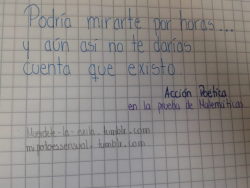 Podría mirarte por horas...
y aún así no te darías
cuenta que existo
Acción Poética
en la prueba de Matemáticas
.tumblr.com
.tumblr.com